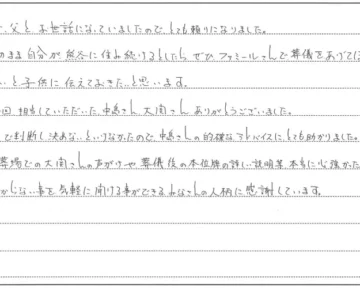 、父と、お世話になっていましたので、とても頼りになりました。
のまま自分が熊谷に住み続けるとしたら、ぜひファミールさんで葬儀をあげてほ
、と子供に伝えておきたいと思います。
回、担当していただいた、中島さん、大関さん、ありがとうございました。
で判断し決めないといけなかったので、中島さんの的確なアドバイスに、とても助かりました。
葬場での大関さんの声がけや、葬儀後の本位牌の詳しい説明等、本当に心強かった
からない事を気軽に聞ける事ができる、みなさんの人柄に感謝しています。